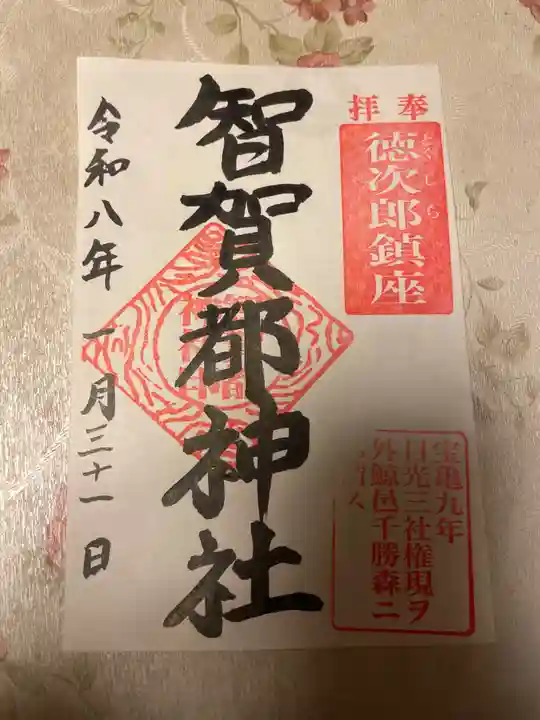 奉拝
とくじら
徳次郎鎮座
宝亀九年
日光三社権現ヲ
外鯨邑千勝森ニ
智賀都神社
令和八年 一月三十一日